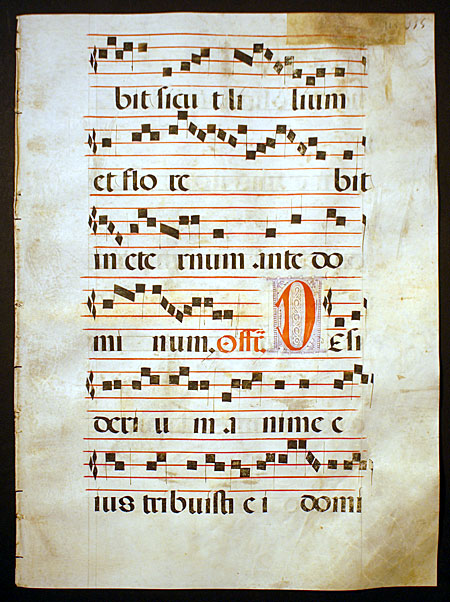 bit sicut li lium
et flo re bit
in ete rnum ante do
mi num. Offr̃. DEsi
deri u m a nime e
ius tribuisti e i domi